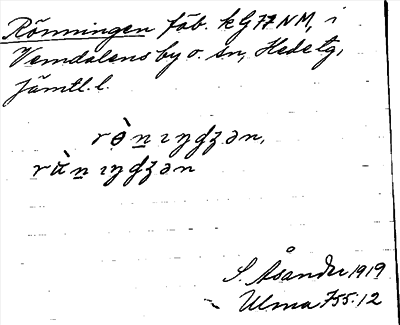 Rönningen fäb. k G 77 NM, i
Vemdalens by o. sn, Hede tg,
Jämtl. l.
rò̤n̲ıŋdʒən,
rɑ̈̀n̲ıŋdʒən
S. Åsander 1919
Ulma 755:12